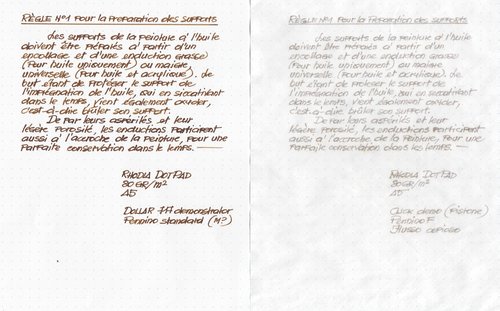 RÈGLE N°1 POUR LA PRÉPARATION DES SUPPORTS
Les supports de la peinture à l'huile
doivent être préparés à partir d'un
encollage et d'une enduction grasse
(pour huile uniquement) ou maigre,
universelle (pour huile et acrylique). Le
but étant de protéger le support de
l'imprégnation de l'huile, qui en siccativant
dans le temps, vient également oxyder,
c'est-à-dire brûler son support.
De par leurs aspérités et leur
légère porosité, les enductions participent
aussi à l'accroche de la peinture, pour une
parfaite conservation dans le temps.
RHODIA DOTPAD
80 GR/m²
A5
DOLLAR 717i demonstrator
Pennino standard (M?)
RÈGLE N°1 POUR LA PRÉPARATION DES SUPPORTS
Les supports de la peinture à l'huile
doivent être préparés à partir d'un
encollage et d'une enduction grasse
(pour huile uniquement) ou maigre,
universelle (pour huile et acrylique). Le
but étant de protéger le support de
l'imprégnation de l'huile, qui en siccativant
dans le temps, vient également oxyder,
c'est-à-dire brûler son support.
De par leurs aspérités et leur
légère porosité, les enductions participent
aussi à l'accroche de la peinture, pour une
parfaite conservation dans le temps.
RHODIA DOTPAD
80GR/m²
A5
CLICK demo (pistone)
Pennino F
Flusso copioso